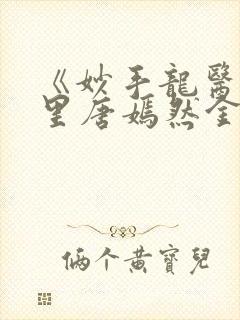 《妙手龍醫
里唐嫣然全
俩个黄寶兒